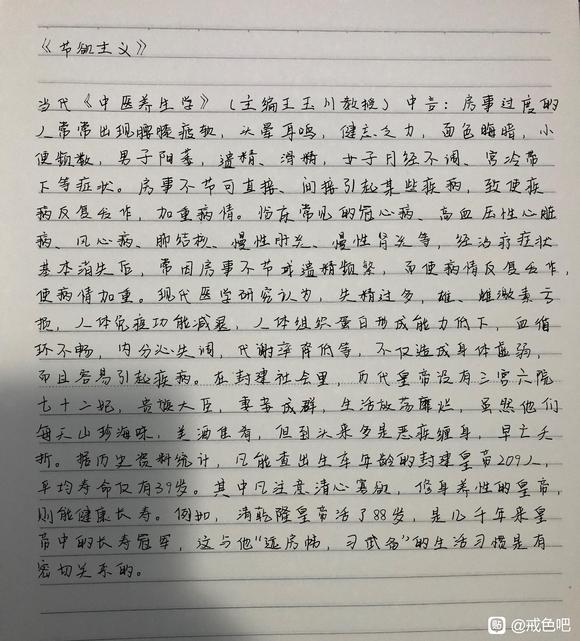 《节欲主义》
当代《中医养生学》（主编王玉川教授）中言：房事过度的
人常常出现腰膝疲软，头晕耳鸣，健忘乏力，面色晦暗，小
便频数，男子阳萎，遗精、滑精，女子月经不调、宫冷带
下等症状。房事不节可直接、间接引起某些疾病，致使疾
病反复发作，加重病情。临床常见的冠心病、高血压性心脏
病、风心病、肺结核、慢性肝炎、慢性肾炎等，经治疗症状
基本消失后，常因房事不节或遗精频繁，而使病情反复发作，
使病情加重。现代医学研究认为，失精过多，雄、雌激素亏
损，人体免疫功能减退，人体组织蛋白形成能力低下，血循
环不畅，内分泌失调，代谢率降低等，不仅造成身体虚弱，
而且容易引起疾病。在封建社会里，历代皇帝设有三宫六院
七十二妃，贵族大臣，妻妾成群，生活放荡靡烂，虽然他们
每天山珍海味，美酒佳肴，但到头来多是恶疾缠身，早亡夭
折。据历史资料统计，凡能查出生卒年龄的封建皇帝209人，
平均寿命仅有39岁。其中凡注意清心寡欲，修身养性的皇帝，
则能健康长寿。例如，清乾隆皇帝活了88岁，是几千年来皇
帝中的长寿冠军，这与他“远房帏，习武备”的生活习惯是有
密切关系的。
贴 @戒色吧